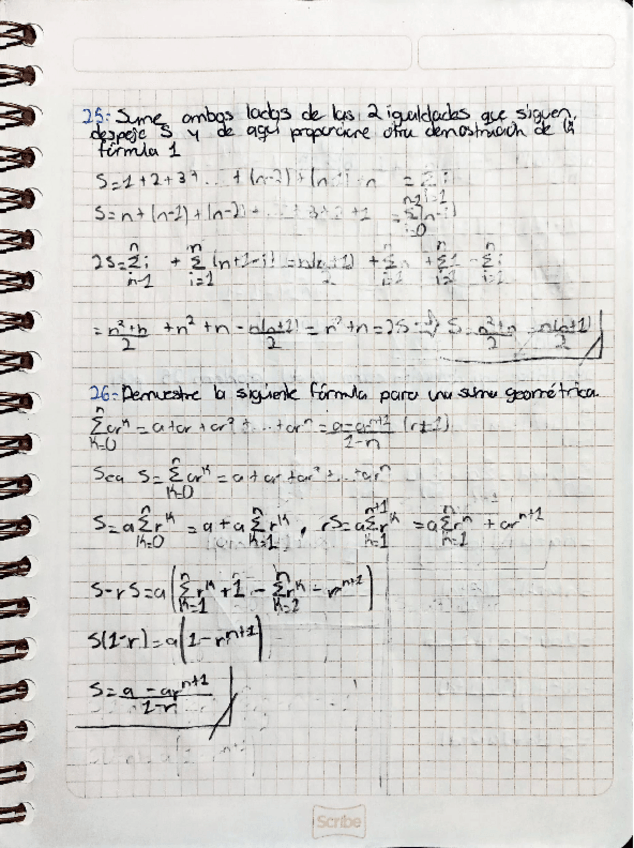 25: Sume ambos lados de las 2 igualdades que siguen,
despeje S y de aquí proporcione otra demostración de la
fórmula 1
S=1+2+3+...+(n-2)+(n-1)+n = Σ i
i=1
S=n+(n-1)+(n-2)+...+3+2+1 = Σ(n-i)
i=0
2S=Σi + Σ(n+1-i) = n(n+1)/2 + Σn + Σ1 - Σi
n-1 i=1 i=1 i=1 i=1
= n²+n/2 + n² + n - n(n+1)/2 = n²+n = 2S => S n²+n/2 n(n+1)/2
26: Demuestre la siguiente fórmula para una suma geométrica.
Σar^k = a+ar+ar²+...+ar^n = a-ar^n+1/1-r (r≠1)
k=0
Sea S=Σar^k = a+ar+ar²+...+ar^n
k=0
S=aΣr^k = a+aΣr^k, rS=aΣr^k = aΣr^n + ar^n+1
k=0 k=1 k=1 n=1
S-rS=a(Σr^k+1-Σr^k-r^n+1)
k=1 k=1
S(1-r)=a(1-r^n+1)
S=a-ar^n+1/1-r
Scribe